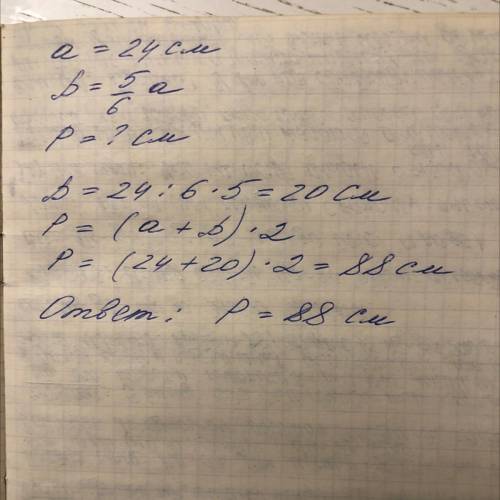 a = 24 см
b = 5/6 a
P = ? см
b = 24 : 6 · 5 = 20 см
P = (a + b) · 2
P = (24 + 20) · 2 = 88 см
Ответ: P = 88 см